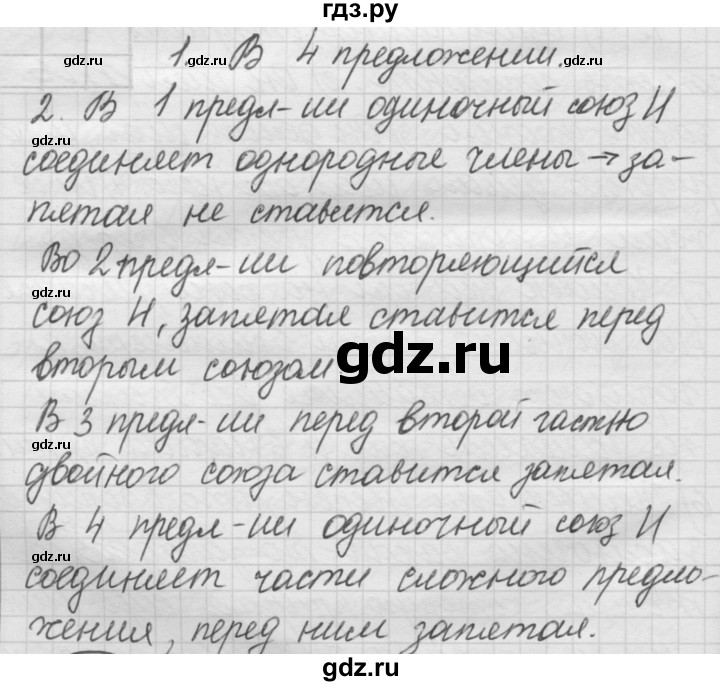 гдз.ру
1. В 4 предложении.
2. В 1 предл-ии одиночный союз И
соединяет однородные члены → за-
пятая не ставится.
Во 2 предл-ии повторяющийся
союз И, запятая ставится перед
вторым союзом
В 3 предл-ии перед второй частью
двойного союза ставится запятая.
В 4 предл-ии одиночный союз И
соединяет части сложного предло-
жения, перед ним запятая.
gdz.ru
gdz.ru
gdz.ru
gdz.ru
gdz.ru
gdz.ru
gdz.ru
gdz.ru
gdz.ru